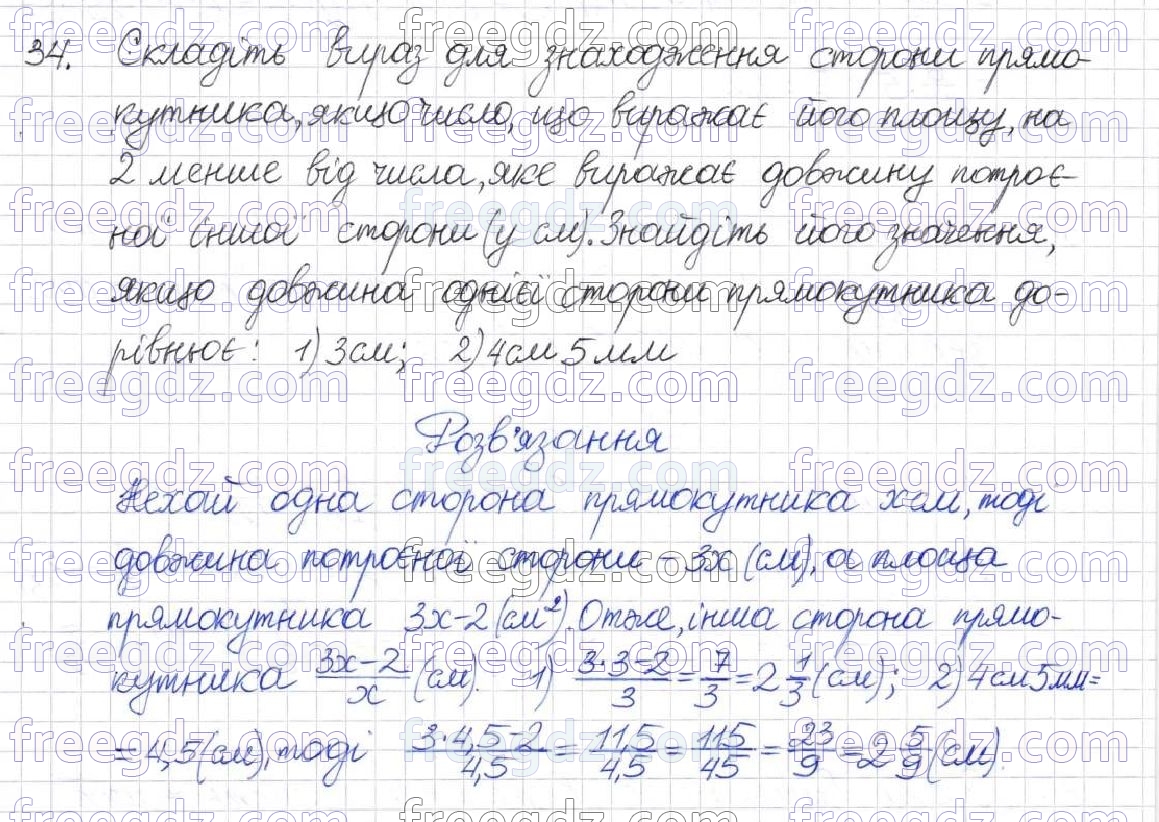 34. Складіть вираз для знаходження сторони прямо-
кутника, якщо число, що виражає його площу, на
2 менше від числа, яке виражає довжину потроє-
ної іншої сторони (у см). Знайдіть його значення,
якщо довжина однієї сторони прямокутника до-
рівнює: 1) 3 см; 2) 4 см 5 мм
Розв'язання
Нехай одна сторона прямокутника x см, тоді
довжина потроєної сторони – 3x (см), а площа
прямокутника 3x-2 (см²). Отже, інша сторона прямо-
кутника (3x-2)/x (см). 1) (3·3-2)/3 = 7/3 = 2 1/3 (см); 2) 4 см 5 мм =
= 4,5 (см), тоді (3·4,5-2)/4,5 = 11,5/4,5 = 115/45 = 23/9 = 2 5/9 (см).
freegdz.com